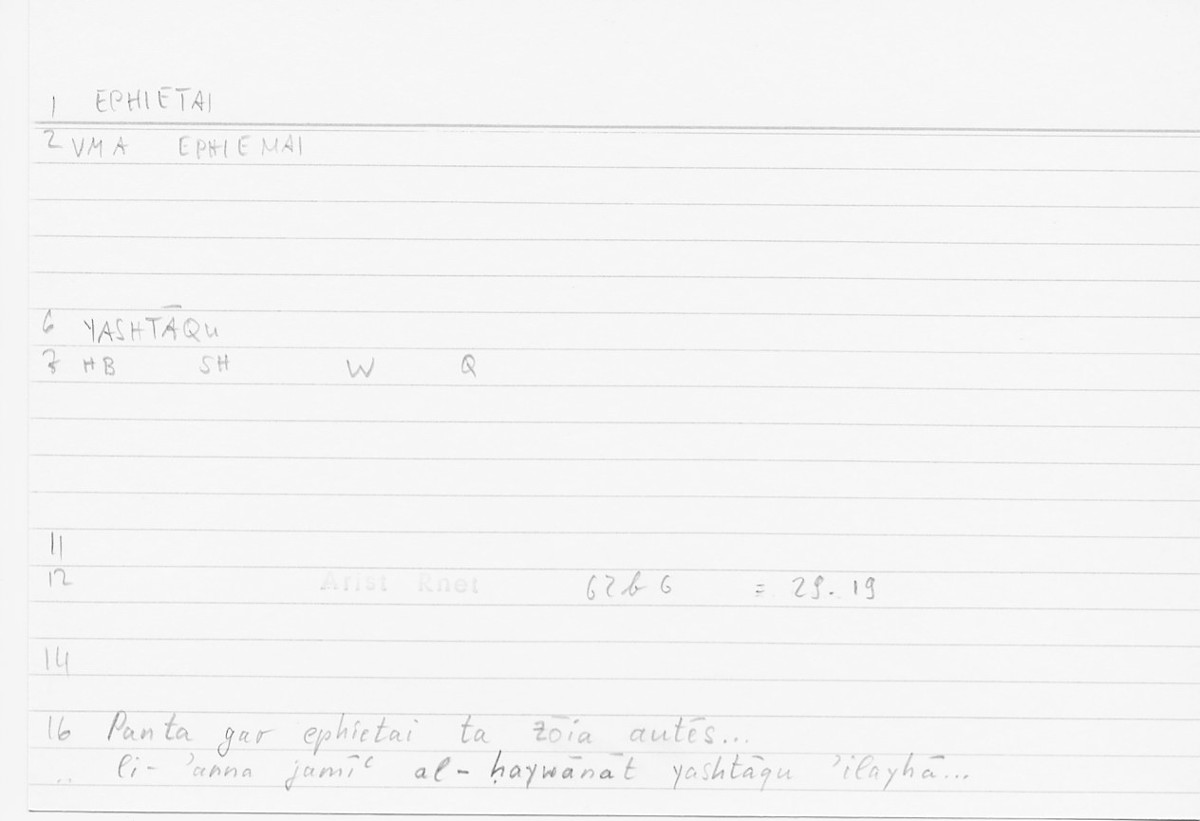 1 EPHIETAI
2 VMA EPHIEMAI
6 YASHTĀQU
7 HB SH W Q
11
12 Arist Rhet 62b6 = 29.19
14
16 Panta gar ephietai ta zōia autēs...
.. li-ʾanna jamīʿ al-ḥaywānāt yashtāqu ʾilayhā...